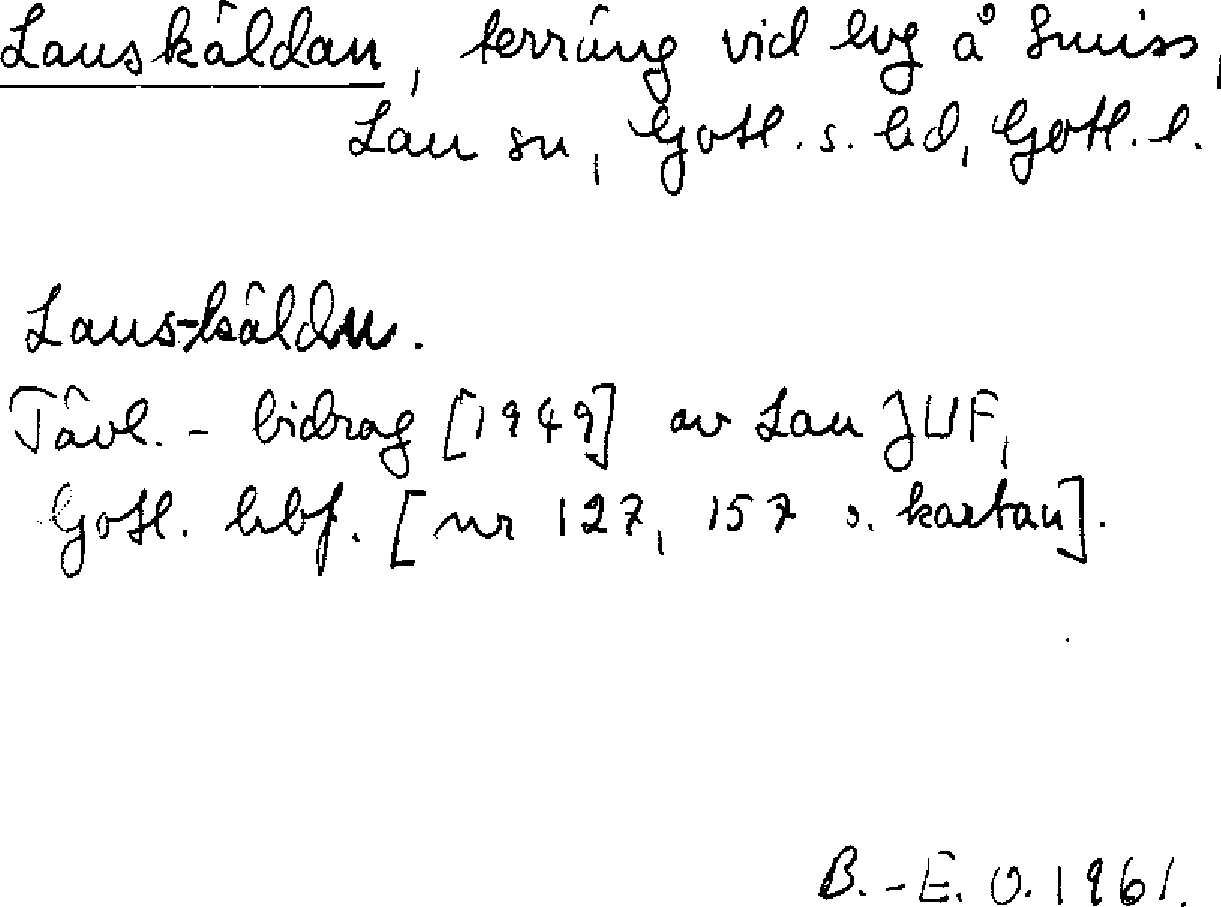 Lauskäldan, terräng vid lvg å Smiss,
Lau sn, Gotl. s. hd, Gotl. l.
Laus-käldu.
Tävl.-bidrag [1949] av Lau JUF,
Gotl. hbf. [nr 127, 157 o. kartan].
B.-E. O. 1961.